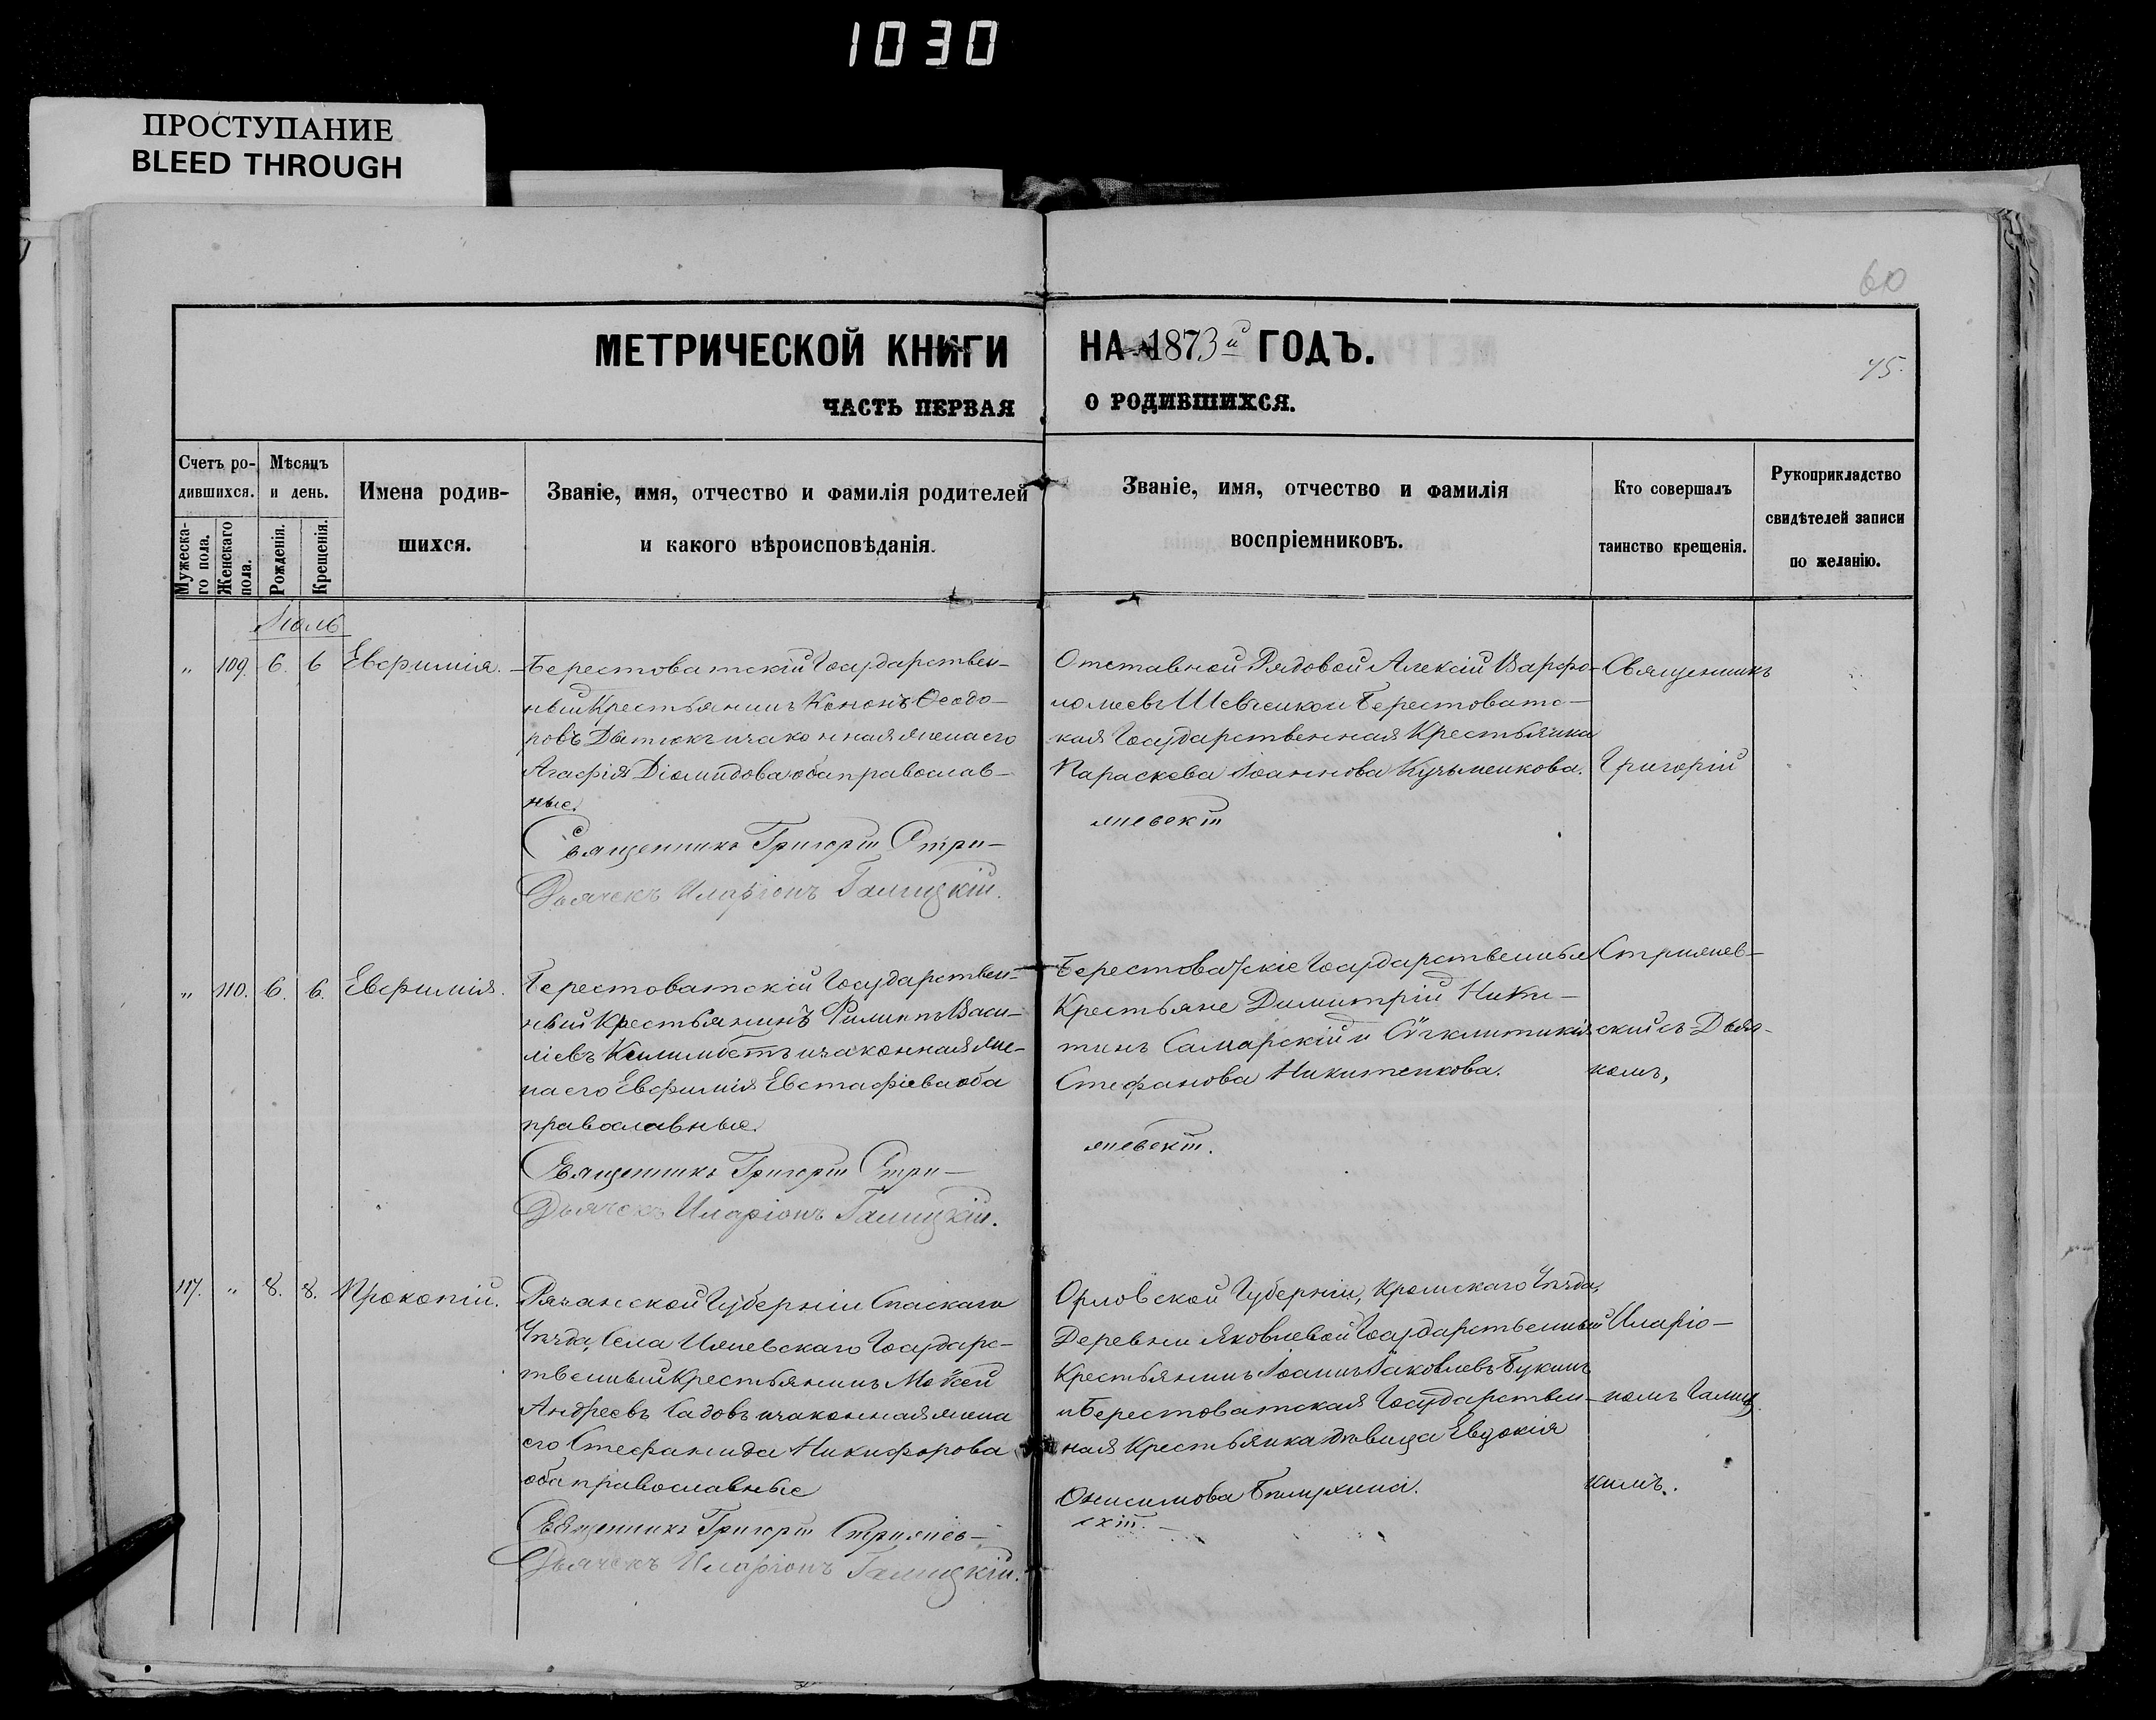 1030
ПРОСТУПАНИЕ
BLEED THROUGH
60
МЕТРИЧЕСКОЙ КНИГИ НА 1873й ГОДЪ.
45.
ЧАСТЬ ПЕРВАЯ О РОДИВШИХСЯ.
Счетъ ро-
дившихся.
Мужеска-
го пола.
Женскаго
пола.
Мѣсяцъ
и день.
Рожденія.
Крещенія.
Имена родив-
шихся.
Званіе, имя, отчество и фамилія родителей
и какого вѣроисповѣданія.
Званіе, имя, отчество и фамилія
воспріемниковъ.
Кто совершалъ
таинство крещенія.
Рукоприкладство
свидѣтелей записи
по желанію.
Іюль
" 109. 6. 6 Евфимія.
Берестоватскій Государствен-
ный Крестьянинъ Кононъ Ѳеодо-
ровъ и законная жена его
Агафія Діомидова оба православ-
ные.
Священникъ Григорій Стри-
Дьячекъ Иларіонъ Галицкій.
Отставной Рядовой Алексій Варфо-
ломеевъ Шевченко и Берестоватс-
кая Государственная Крестьянка
Параскева Іоаннова Кузьменкова.
жевскій
Священникъ
Григорій
" 110. 6. 6. Евфимія.
Берестоватскій Государствен-
ный Крестьянинъ Филиппъ Васи-
ліевъ и законная же-
на его Евфимія Евстафіева оба
православные.
Священникъ Григорій Стри-
Дьячекъ Иларіонъ Галицкій.
Берестоватскіе Государственные
Крестьяне Димитрій Ники-
тинъ Самарскій и Сѵнклитикія
Стефанова Никитенкова.
жевскій.
Стрижев-
скій съ Дьяч-
комъ,
117. " 8. 8. Прокопій.
Рязанской Губерніи Спаскаго
Уѣзда, Села Ижевскаго Государс-
твенный Крестьянинъ Моѵсей
Андреевъ Садовъ и законная жена
его Стефанида Никифорова
оба православные
Священникъ Григорій Стрижев-
Дьячекъ Иларіонъ Галицкій.
Орловской Губерніи, Кромскаго Уѣзда,
Деревни Яковлевой Государственный
Крестьянинъ Іоаннъ Іаковлевъ Букинъ
и Берестоватская Государствен-
ная Крестьянка дѣвица Евдокія
Онисимова
скій.
Иларіо-
номъ Галиц
кимъ.